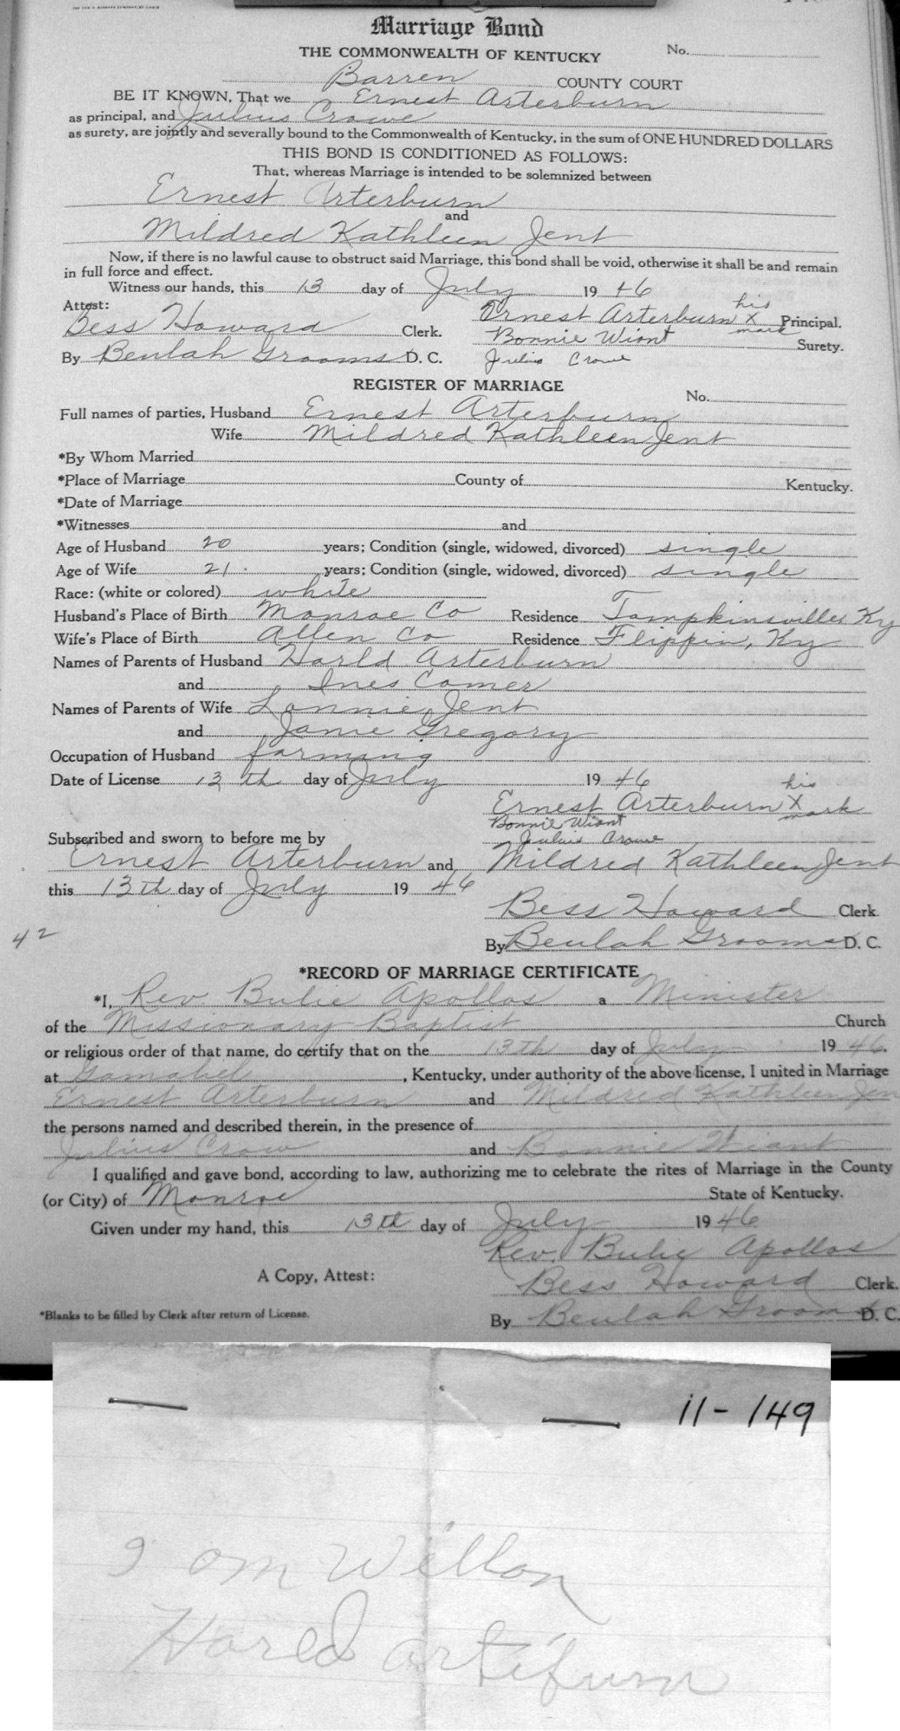 Marriage Bond
THE COMMONWEALTH OF KENTUCKY No.
Barren COUNTY COURT
BE IT KNOWN, That we Ernest Arterburn
as principal, and Julius Crowe
as surety, are jointly and severally bound to the Commonwealth of Kentucky, in the sum of ONE HUNDRED DOLLARS
THIS BOND IS CONDITIONED AS FOLLOWS:
That, whereas Marriage is intended to be solemnized between
Ernest Arterburn
and
Mildred Kathleen Jent
Now, if there is no lawful cause to obstruct said Marriage, this bond shall be void, otherwise it shall be and remain
in full force and effect.
Witness our hands, this 13 day of July 19 46
Attest: Ernest Arterburn his X mark Principal.
Bess Howard Clerk. Bonnie Wiont Surety.
By Beulah Grooms D. C. Julius Crowe
REGISTER OF MARRIAGE
No.
Full names of parties, Husband Ernest Arterburn
Wife Mildred Kathleen Jent
*By Whom Married
*Place of Marriage County of Kentucky.
*Date of Marriage
*Witnesses and
Age of Husband 20 years; Condition (single, widowed, divorced) single
Age of Wife 21. years; Condition (single, widowed, divorced) single
Race: (white or colored) white
Husband's Place of Birth Monroe Co Residence Tompkinsville, Ky
Wife's Place of Birth Allen Co Residence Flippin, Ky
Names of Parents of Husband Harld Arterburn
and Ines Comer
Names of Parents of Wife Lonnie Jent
and Janie Gregory
Occupation of Husband farming
Date of License 13th day of July 19 46
Ernest Arterburn his X mark
Bonnie Wiont
Subscribed and sworn to before me by Julius Crowe
Ernest Arterburn and Mildred Kathleen Jent
this 13th day of July 19 46
Bess Howard Clerk
42
By Beulah Grooms D. C.
*RECORD OF MARRIAGE CERTIFICATE
*I, Rev Bulie Apollos a Minister
of the Missionary Baptist Church
or religious order of that name, do certify that on the 13th day of July 19 46.
at Gamabel, Kentucky, under authority of the above license, I united in Marriage
Ernest Arterburn and Mildred Kathleen Jen
the persons named and described therein, in the presence of
Julius Crow and Bonnie Wiant
I qualified and gave bond, according to law, authorizing me to celebrate the rites of Marriage in the County
(or City) of Monroe State of Kentucky.
Given under my hand, this 13th day of July 19 46
Rev. Bulie Apollos
A Copy, Attest: Bess Howard Clerk.
*Blanks to be filled by Clerk after return of License. By Beulah Grooms D. C.
11-149
I om Willon
Hareld artifurn